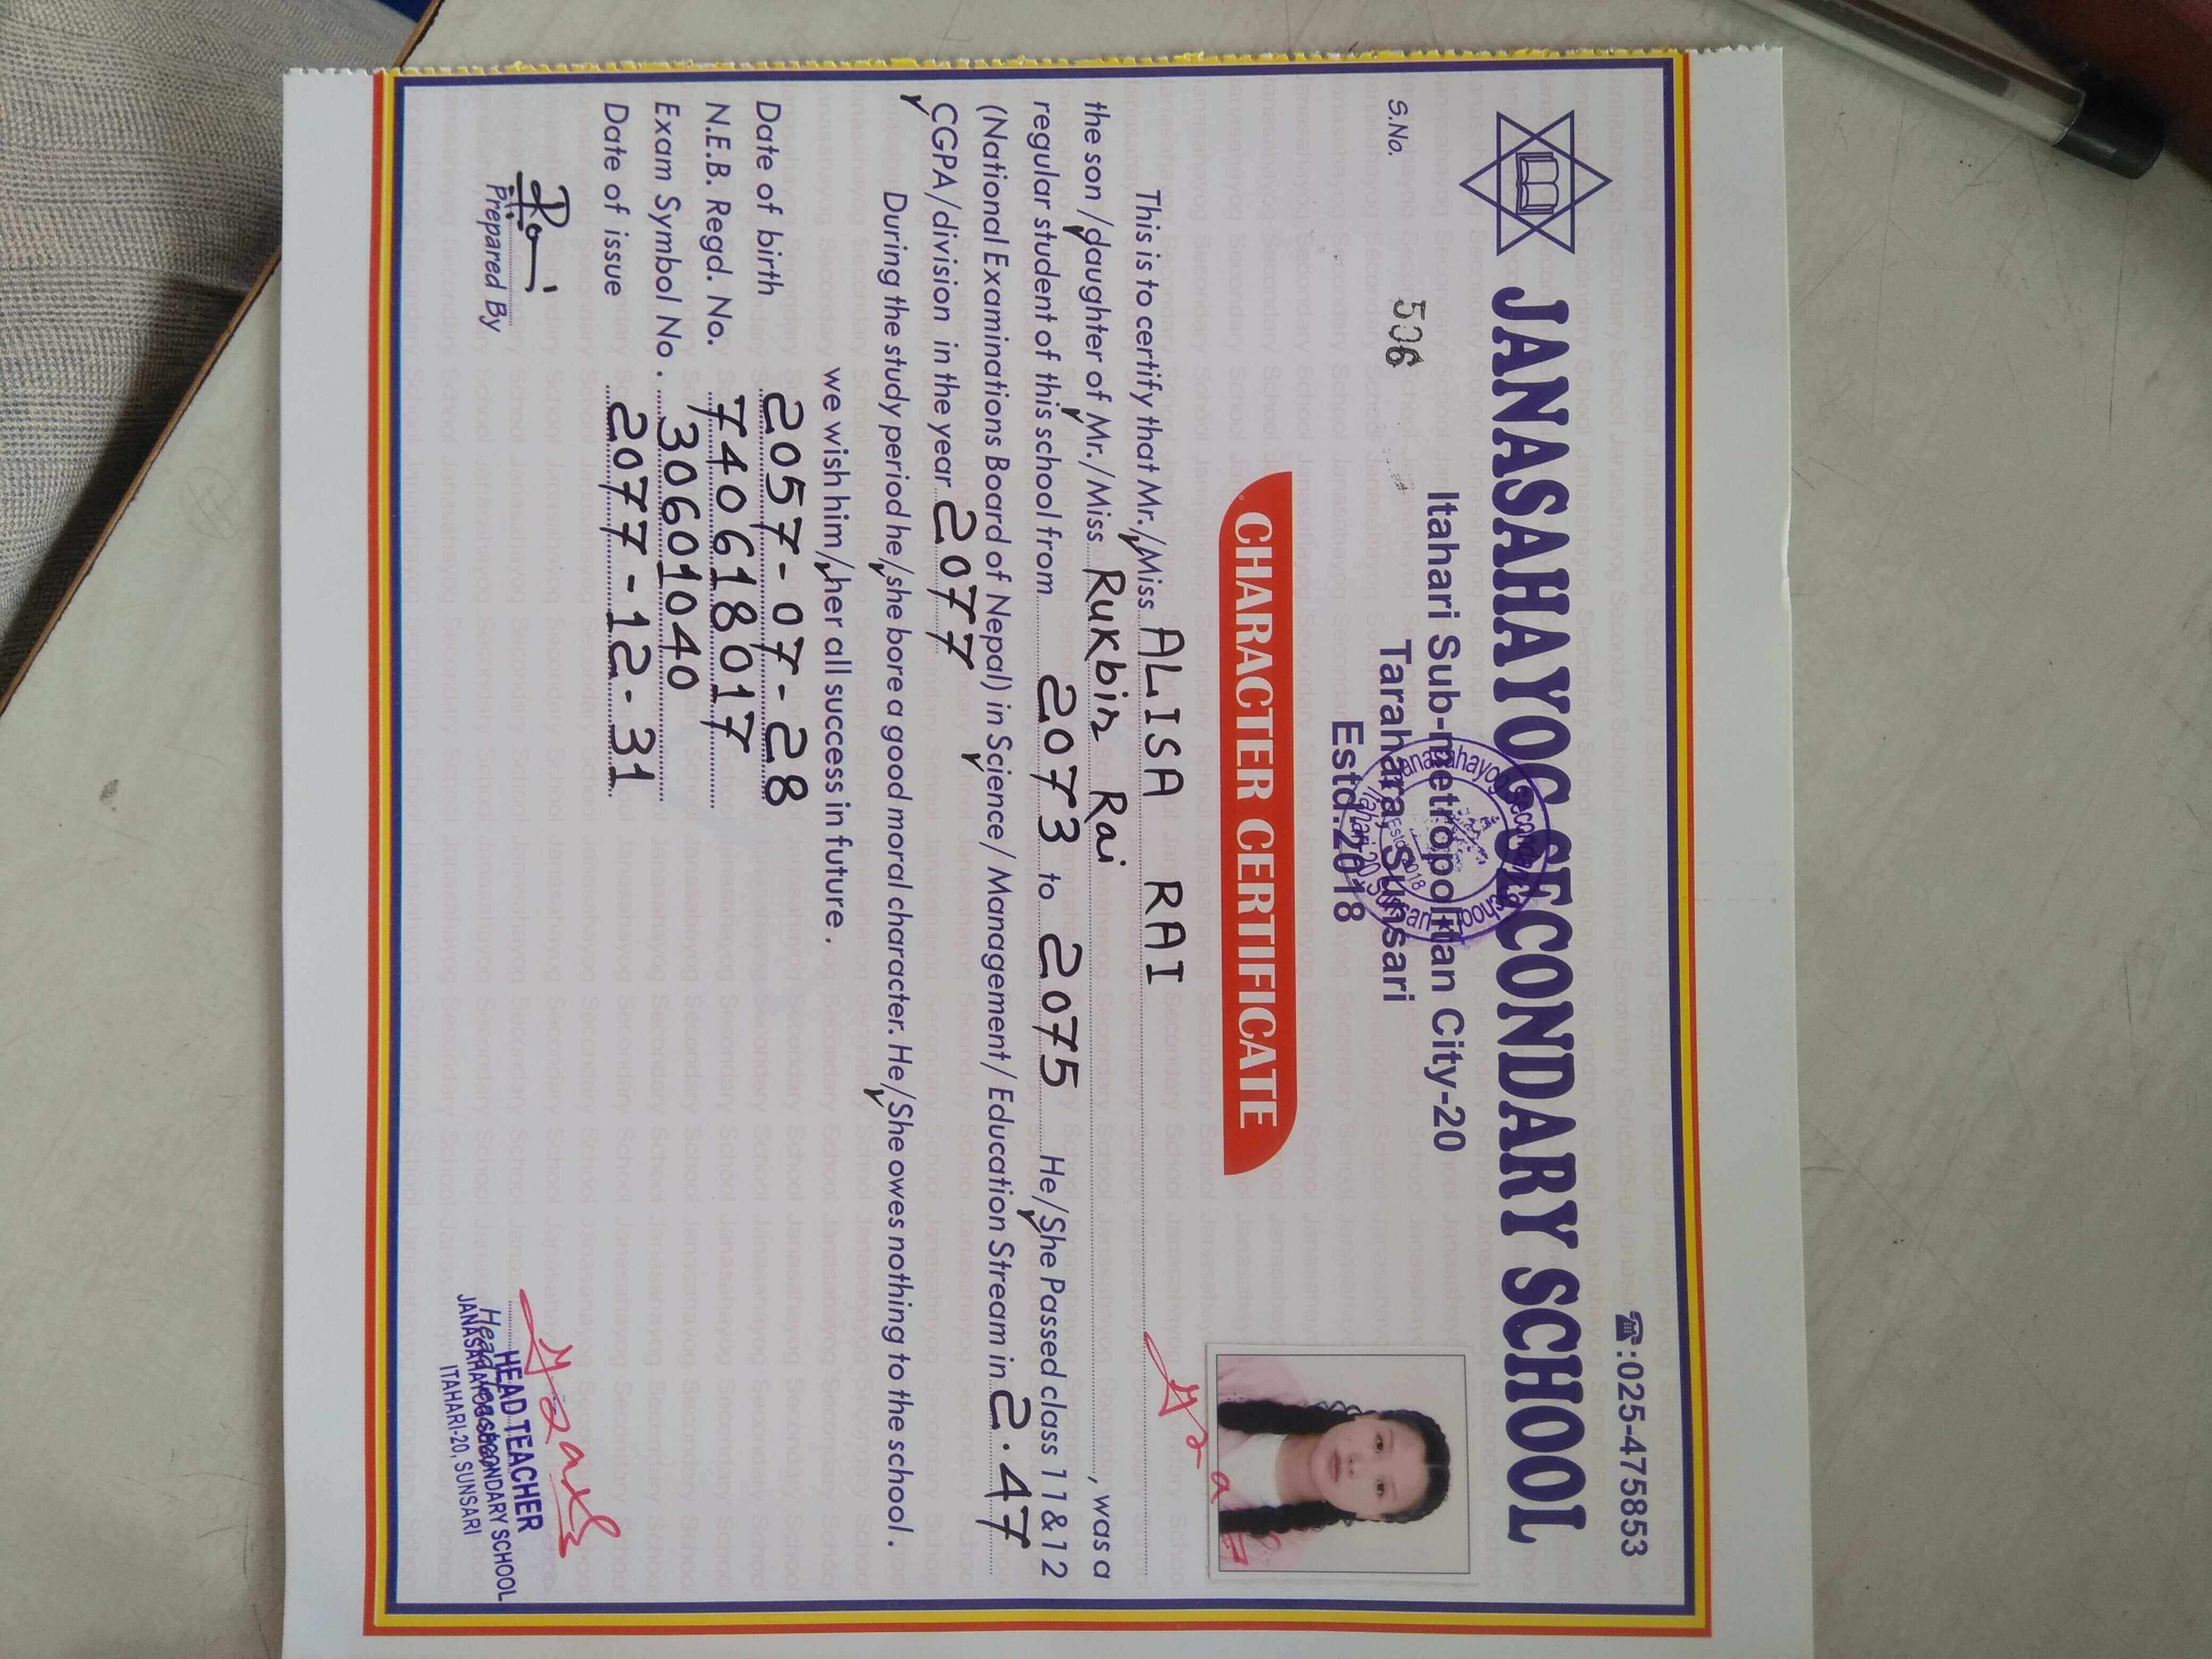 ☎:025-475853
JANASAHAYOG SECONDARY SCHOOL
Itahari Sub-metropolitan City-20
S.No. 506
Tarahara, Sunsari
Estd.2018
CHARACTER CERTIFICATE
This is to certify that Mr./Miss ALISA RAI
the son /daughter of Mr./Miss Rukbir Rai, was a
regular student of this school from 2073 to 2075 He/She Passed class 11&12
(National Examinations Board of Nepal) in Science/ Management/ Education Stream in 2.47
CGPA/division in the year 2077
During the study period he/she bore a good moral character. He/She owes nothing to the school.
we wish him/her all success in future.
Date of birth 2057-07-28
N.E.B. Regd. No. 740618017
Exam Symbol No. 30601040
Date of issue 2077-12-31
Prepared By
Head Teacher
HEAD TEACHER
JANASAHAYOG SECONDARY SCHOOL
ITAHARI-20, SUNSARI
Janasahayog Secondary School
Itahari-20, Sunsari
Estd. 2018